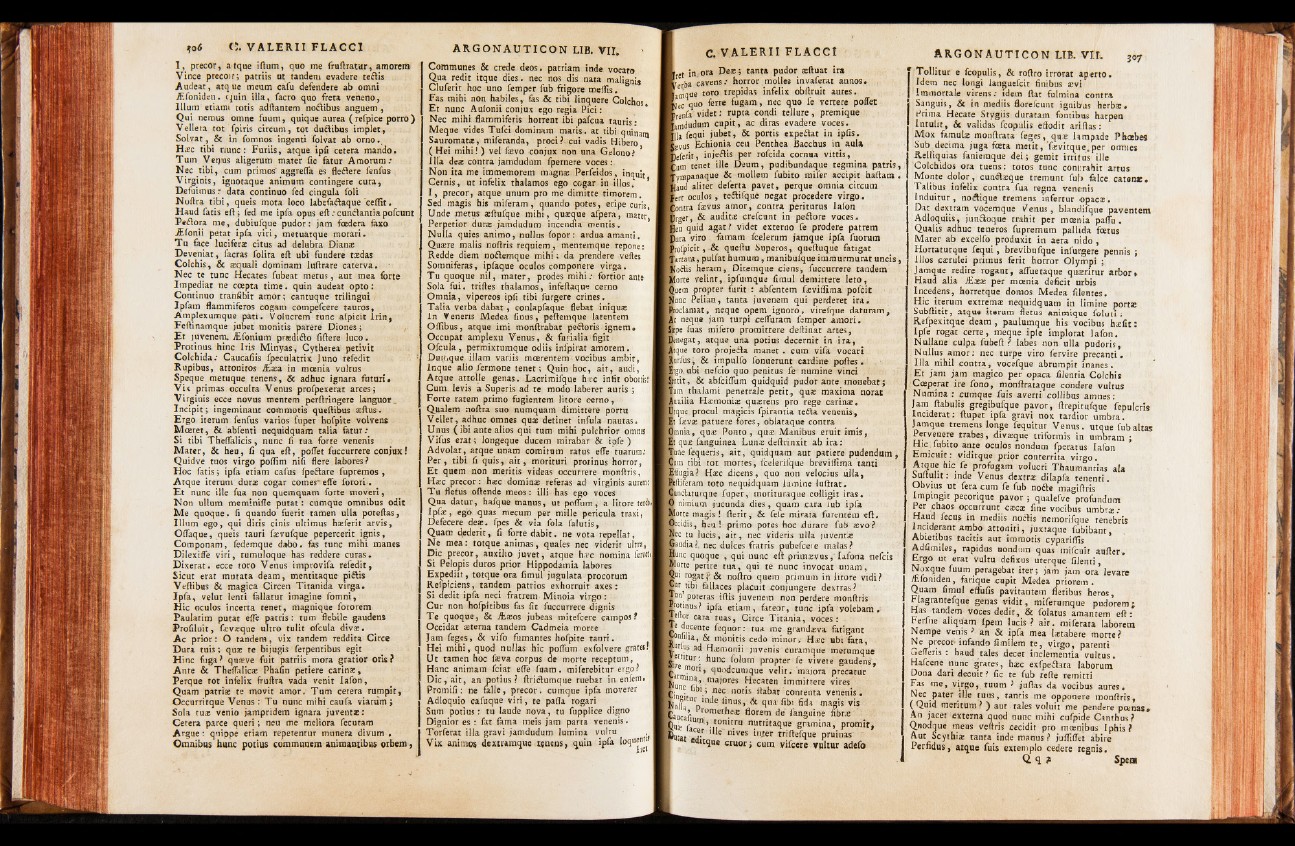 306 C. VALERII FLACCI
I, precor, atque iſtum, quo me fruſtratur, amorem
Vince precor; patriis ut tandem evadere tectis
Audeat, atque meum caſu defendere ab omni
Æſoniden. quin illa, ſacro quo freta veneno,
Illum etiam totis adſtantem noctibus anguem,
Qui nemus omne ſuum, quique aurea (reſpice porro)
Vellera tot ſpiris circum, tot ductibus implet,
Solvat, & in ſomnos ingenti ſolvat ab orno.
Hæc tibi nunc: Furiis, atque ipſi cetera mando.
Tum Venus aligerum mater ſic fatur Amorum:
Nec tibi, cum primos aggreſſa es flectere ſenſus
Virginis, ignotaque animum contingere cura,
Defuimus: data continuo ſed cingula ſoli
Noſtra tibi, queis mota loco labefactaque ceſſit.
Haud ſatis eſt, ſed me ipſa opus eſt: cunctantia poſcunt
Pectora me, dubiuſque pudor: jam fœdera faxo
Æſonii petat ipſa viri, metuatque morari.
Tu face luciferæ citus ad delubra Dianæ
Deveniat, ſacras ſolita eſt ubi fundere tædas
Colchis, & æquali dominam luſtrare caterva.
Nec te tunc Hecates ſubeat metus, aut mea forte
Impediat ne cœpta time. quin audeat opto:
Continuo tranſibit amor; cantuque trilingui
Ipſam flammiferos cogam compeſcere tauros,
Amplexumque pati. Volucrem tunc aſpicit Irin,
Feſtinamque jubet monitis parere Diones;
Et juvenem Æſonium prædicto ſiſtere luco.
Protinus hinc Iris Minyas, Cytherea petivit
Colchida: Caucaſiis ſpeculatrix Juno reſedit
Rupibus, attonitos Ææa in mœnia vultus
Speque metuque tenens, & adhuc ignara futuri.
Vix primas occulta Venus proſpexerat arces;
Virginis ecce novus mentem perſtringere languor
Incipit; ingeminant commotis queſtibus æſtus.
Ergo iterum ſenſus varios ſuper hoſpite volvens
Mœret, & abſenti nequidquam talia fatur:
Si tibi Theſſalicis, nunc ſi tua forte venenis
Mater, & heu, ſi qua eſt, poſſet ſuccurrere conjux!
Quidve tuos virgo poſſim niſi flere labores?
Hoc ſatis; ipſa etiam caſus ſpectare ſupremos,
Atque iterum duræ cogar comes eſſe ſorori.
Et nunc ille ſua non quemquam forte moveri,
Non ullum meminiſſe putat: cumque omnibus odit
Me quoque. ſi quando fuerit tamen ulla poteſtas,
Illum ego, qui diris cinis ultimus hæſerit arvis,
Oſſaque, queis tauri ſævuſque pepercerit ignis,
Componam, ſedemque dabo. fas tunc mihi manes
Dilexiſſe viri, tumuloque has reddere curas.
Dixerat. ecce toro Venus improviſa reſedit,
Sicut erat mutata deam, mentitaque pictis
Veſtibus & magica Circen Titanida virga.
Ipſa, velut lenti fallatur imagine ſomni,
Hic oculos incerta tenet, magnique ſororem
Paulatim putat eſſe patris: tum flebile gaudens
Proſiluit, ſævæque ultro tulit oſcula divæ.
Ac prior: O tandem, vix tandem reddita Circe
Dura tuis; quæ te bijugis ſerpentibus egit
Hinc fuga? quæve fuit patriis mora gratior oris?
Ante & Theſſalicæ Phaſin petiere carinæ,
Perque tot infelix fruſtra vada venit Iaſon,
Quam patriæ te movit amor. Tum cetera rumpit,
Occurritque Venus: Tu nunc mihi cauſa viarum;
Sola tuæ venio jampridem ignara juventæ:
Cetera parce queri; neu me meliora ſecutam
Argue: quippe etiam repetentur munera divum,
Omnibus hunc potius communem animantibus orbem,
ARGONAUTICON LIB. VII.
Communes & crede deos. patriam inde vocato
Qua redit itque dies. nec nos dis nata malignis
Cluſerit hoc uno ſemper ſub frigore meſſis.
Fas mihi non habiles, fas & tibi linquere Colchos.
Et nunc Auſonii conjux ego regia Pici:
Nec mihi flammiferis horrent ibi paſcua tauris:
Meque vides Tuſci dominam maris. at tibi quinam
Sauromatæ, miſeranda, proci? cui vadis Hibero,
(Hei mihi!) vel ſævo conjux non una Gelono?
Illa deæ contra jamdudum ſpernere voces:
Non ita me immemorem magnæ Perſeidos, inquit,
Cernis, ut infelix thalamos ego cogar in illos.
I, precor, atque unum pro me dimitte timorem.
Sed magis his miſeram, quando potes, eripe curis,
Unde metus æſtuſque mihi, quæque aſpera, mater,
Perpetior duræ jamdudum incendia mentis.
Nulla quies animo, nullus ſopor: ardua amanti.
Quære malis noſtris requiem, mentemque repone:
Redde diem noctemque mihi: da prendere veſtes
Somniferas, ipſaque oculos componere virga.
Tu quoque nil, mater, prodes mihi: fortior ante
Sola fui. triſtes thalamos, infeſtaque cerno
Omnia, vipereos ipſi tibi ſurgere crines.
Talia verba dabat, conlapſaque flebat iniquæ
In Veneris Medea ſinus, peſtemque latentem
Oſſibus, atque imi monſtrabat pectoris ignem.
Occupat amplexu Venus, & furialia figit
Oſcula, permixtumque odiis inſpirat amorem.
Dumque illam variis mœrentem vocibus ambit,
Inque alio ſermone tenet; Quin hoc, ait, audi,
Atque attolle genas. Lacrimiſque hæc infit obortis:
Cum levis a Superis ad te modo laberer auris;
Forte ratem primo fugientem litore cerno,
Qualem noſtra ſuo numquam dimittere portu
Vellet, adhuc omnes quæ detinet inſula nautas.
Unus (ibi ante alios qui tum mihi pulchrior omnes
Viſus erat; longeque ducem mirabar & ipſe)
Advolat, atque unam comitum ratus eſſe tuarum:
Per, tibi ſi quis, ait, morituri protinus horror,
Et quem non meritis videas occurrere monſtris,
Hæc precor: hæc dominæ referas ad virginis aurem:
Tu fletus oſtende meos: illi has ego voces
Qua datur, haſque manus, ut poſſum, a litore tendo.
Ipſæ, ego quas mecum per mille pericula traxi,
Defecere deæ. ſpes & via ſola ſalutis,
Quam dederit, ſi forte dabit. ne vota repellat,
Ne mea: totque animas, quales nec viderit ultra,
Dic precor, auxilio juvet, atque hæc nomina ſervet.
Si Pelopis duros prior Hippodamia labores
Expediit, totque ora ſimul jugulata procorum
Reſpiciens, tandem patrios exhorruit axes:
Si dedit ipſa neci fratrem Minoia virgo:
Cur non hoſpitibus fas ſit ſuccurrere dignis
Te quoque, & Ææos jubeas miteſcere campos?
Occidat æterna tandem Cadmeia morte
Jam ſeges, & viſo fumantes hoſpite tauri.
Hei mihi, quod nullas hic poſſum exſolvere grates!
Ut tamen hoc ſæva corpus de morte receptum,
Hanc animam ſciat eſſe ſuam. miſerebitur ergo?
Dic, ait, an potius? ſtrictumque ruebat in enſem.
Promiſi: ne falle, precor. cumque ipſa moverer
Adloquio caſuque viri, te paſſa rogari
Sum potius: tu laude nova, tu ſupplice digno
Dignior es: ſat fama meis jam parta venenis.
Torſerat illa gravi jamdudum lumina vultu
Vix animos dextramque tenens, quin ipſa loquentis
Iret
C. VALERII FLACCI
Iret in ora Deæ; tanta pudor æſtuat ira
Verba cavens: horror molles invaſerat annos.
Jamque toro trepidas infelix obſtruit aures.
Nec quo ferre fugam, nec quo ſe vertere poſſet
Prenſa videt: rupta condi tellure, premique
Jamdudum cupit, ac diras evadere voces.
Illa ſequi jubet, & portis expectat in ipſis.
Sævus Echionia ceu Penthea Bacchus in aula
Deſerit, injectis per roſcida cornua vittis,
Cum tenet ille Deum, pudibundaque tegmina patris,
Tympanaque & mollem ſubito miſer accipit haſtam.
Haud aliter deſerta pavet, perque omnia circum
Fert oculos, tectiſque negat procedere virgo.
Contra ſævus amor, contra periturus Iaſon
Urget, & auditæ creſcunt in pectore voces.
Heu quid agat? videt externo ſe prodere patrem
Dura viro famam ſcelerum jamque ipſa ſuorum
Proſpicit, & queſtu Superos, queſtuque fatigat
Tartara, pulſat humum, manibuſque immurmurat uncis,
Noctis heram, Ditemque ciens, ſuccurrere tandem
Morte velint, ipſumque ſimul demittere leto,
Quem propter furit: abſentem ſæviſſima poſcit
Nunc Pelian, tanta juvenem qui perderet ira.
Proclamat, neque opem ignoro, vireſque daturam,
At neque jam turpi ceſſuram ſemper amori.
Sæpe ſuas miſero promittere deſtinat artes,
Denegat, atque una potius decernit in ira,
Atque toro projecta manet. cum viſa vocari
Rurſus, & impulſo ſonuerunt cardine poſtes.
Ergo, ubi neſcio quo penitus ſe numine vinci
Sentit, & abſciſſum quidquid pudor ante monebat;
Tum thalami penetrale petit, quæ maxima norat
Auxilia Hæmoniæ quærens pro rege carinæ.
Utque procul magicis ſpirantia tecta venenis,
Et ſævæ patuere fores, oblataque contra
Omnia, quæ Ponto, quæ Manibus eruit imis,
Et quæ ſanguinea Lunæ deſtrinxit ab ira:
Tune ſequeris, ait, quidquam aut patiere pudendum,
Cum tibi tot mortes, ſceleriſque breviſſima tanti
Effugia? Hæc dicens, quo non velocius ulla,
Peſtiferam toto nequidquam lumine luſtrat.
Cunctaturque ſuper, morituraque colligit iras.
O nimium jucunda dies, quam cara ſub ipſa
Morte magis! ſtetit, & ſeſe mirata furentem eſt.
Occidis, heu! primo potes hoc durare ſub ævo?
Nec tu lucis, ait, nec videris ulla juventæ
Gaudia? nec dulces fratris pubeſcere malas?
Hunc quoque, qui nunc eſt primævus, Iaſona neſcis
Morte perire tua, qui te nunc invocat unam,
Qui rogat? & noſtro quem primum in litore vidi?
Cur tibi fallaces placuit conjungere dextras?
Tun' poteras iſtis juvenem non perdere monſtris
Protinus? ipſa etiam, fateor, tunc ipſa volebam.
Teſtor cara tuas, Circe Titania, voces:
Te ducente ſequor: tua me grandæva fatigant
Conſilia, & monitis cedo minor. Hæc ubi fata,
Rurſus ad Hæmonii juvenis curamque metumque
Vertitur: hunc ſolum propter ſe vivere gaudens,
Sive mori, quodcumque velit. majora precatur
Carmina, majores Hecaten immittere vires
Nunc ſibi; nec notis ſtabat contenta venenis.
Cingitur inde ſinus, & qua ſibi fida magis vis
Nulla, Prometheæ florem de ſanguine fibræ
Caucaſium, tonitru nutritaque gramina, promit,
Quæ ſacer ille nives inter triſteſque pruinas
Durat editque cruor; cum viſcere vultur adeſo
ARGONAUTICON LIB. VII. 307
Tollitur e ſcopulis, & roſtro irrorat aperto.
Idem nec longi langueſcit finibus ævi
Immortale virens: idem ſtat fulmina contra
Sanguis, & in mediis floreſcunt ignibus herbæ.
Prima Hecate Stygiis duratam fontibus harpen
Intulit, & validas ſcopulis effodit ariſtas:
Mox famulæ monſtrata ſeges, quæ lampade Phœbes
Sub decima juga fœta metit, ſævitque per omnes
Relliquias ſaniemque dei; gemit irritus ille
Colchidos ora tuens: totos tunc contrahit artus
Monte dolor, cunctæque tremunt ſub falce catenæ.
Talibus infelix contra ſua regna venenis
Induitur, noctique tremens infertur opacæ.
Dat dextram vocemque Venus, blandiſque paventem
Adloquiis, junctoque trahit per mœnia paſſu.
Qualis adhuc teneros ſupremum pallida fœtus
Mater ab excelſo produxit in aera nido,
Hortaturque ſequi, brevibuſque inſurgere pennis;
Illos cærulei primus ferit horror Olympi;
Jamque redire rogant, aſſuetaque quæritur arbor.
Haud alia Ææææ per mœnia deficit urbis
Incedens, horretque domos Medea ſilentes.
Hic iterum extremæ nequidquam in limine portæ
Subſtitit, atque iterum fletus animique ſoluti:
Reſpexitque deam, paulumque his vocibus hæſit:
Ipſe rogat certe, meque ipſe implorat Iaſon.
Nullane culpa ſubeſt? labes non ulla pudoris,
Nullus amor: nec turpe viro ſervire precanti.
Illa nihil contra, voceſque abrumpit inanes.
Et jam jam magico per opaca ſilentia Colchis
Cœperat ire ſono, monſtrataque condere vultus
Numina: cumque ſuis averti collibus amnes:
Jam ſtabulis gregibuſque pavor, ſtrepituſque ſepulcris
Inciderat: ſtupet ipſa gravi nox tardior umbra.
Jamque tremens longe ſequitur Venus. utque ſub altas
Pervenere trabes, divæque triformis in umbram;
Hic ſubito ante oculos nondum ſperatus Iaſon
Emicuit: viditque prior conterrita virgo.
Atque hic ſe profugam volucri Thaumantias ala
Suſtulit: inde Venus dextræ dilapſa tenenti.
Obvius ut ſera cum ſe ſub nocte magiſtris
Impingit pecorique pavor; qualeſve profundum
Per chaos occurrunt cæcæ ſine vocibus umbræ:
Haud ſecus in mediis noctis nemoriſque tenebris
Inciderant ambo attoniti, juxtaque ſubibant,
Abietibus tacitis aut immotis cypariſſis
Adſimiles, rapidus nondum quas miſcuit auſter.
Ergo ut erat vultu defixus uterque ſilenti,
Noxque ſuum peragebat iter: jam jam ora levare
Æſoniden, farique cupit Medea priorem.
Quam ſimul effuſis pavitantem fletibus heros,
Flagranteſque genas vidit, miſerumque pudorem;
Has tandem voces dedit, & ſolatus amantem eſt:
Ferſne aliquam ſpem lucis? ait. miſerata laborem
Nempe venis? an & ipſa mea lætabere morte?
Ne precor infando ſimilem te, virgo, parenti
Geſſeris: haud tales decet inclementia vultus.
Haſcene nunc grates, hæc exſpectata laborum
Dona dari decuit? ſic te ſub teſte remitti
Fas me, virgo, tuum? juſtas da vocibus aures.
Nec pater ille tuus, tantis me opponere monſtris,
(Quid meritum?) aut tales voluit me pendere pœnas.
An jacet externa quod nunc mihi cuſpide Canthus?
Quodque meus veſtris cecidit pro mœnibus Iphis?
Aut Scythiæ tanta inde manus? juſſiſſet abire
Perfidus, atque ſuis extemplo cedere regnis.
Q q 2 Spem